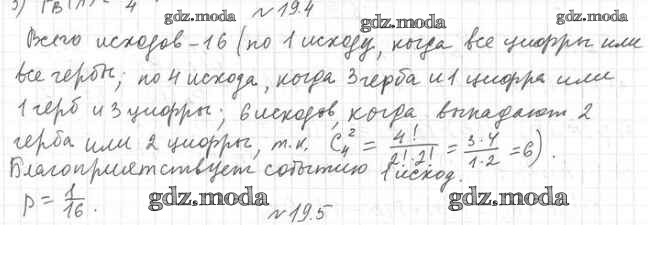 3) P_B(A) = 4
№19.4
gdz.moda gdz.moda gdz.moda
Всего исходов - 16 (по 1 исходу, когда все цифры или
все гербы; по 4 исхода, когда 3 герба и 1 цифра или
1 герб и 3 цифры; 6 исходов, когда выпадают 2
герба или 2 цифры, т.к. C_4^2 = 4!/(2!·2!) = (3·4)/(1·2) = 6).
Благоприятствует событию 1 исход.
p = 1/16.
gdz.moda gdz.moda gdz.moda
№19.5